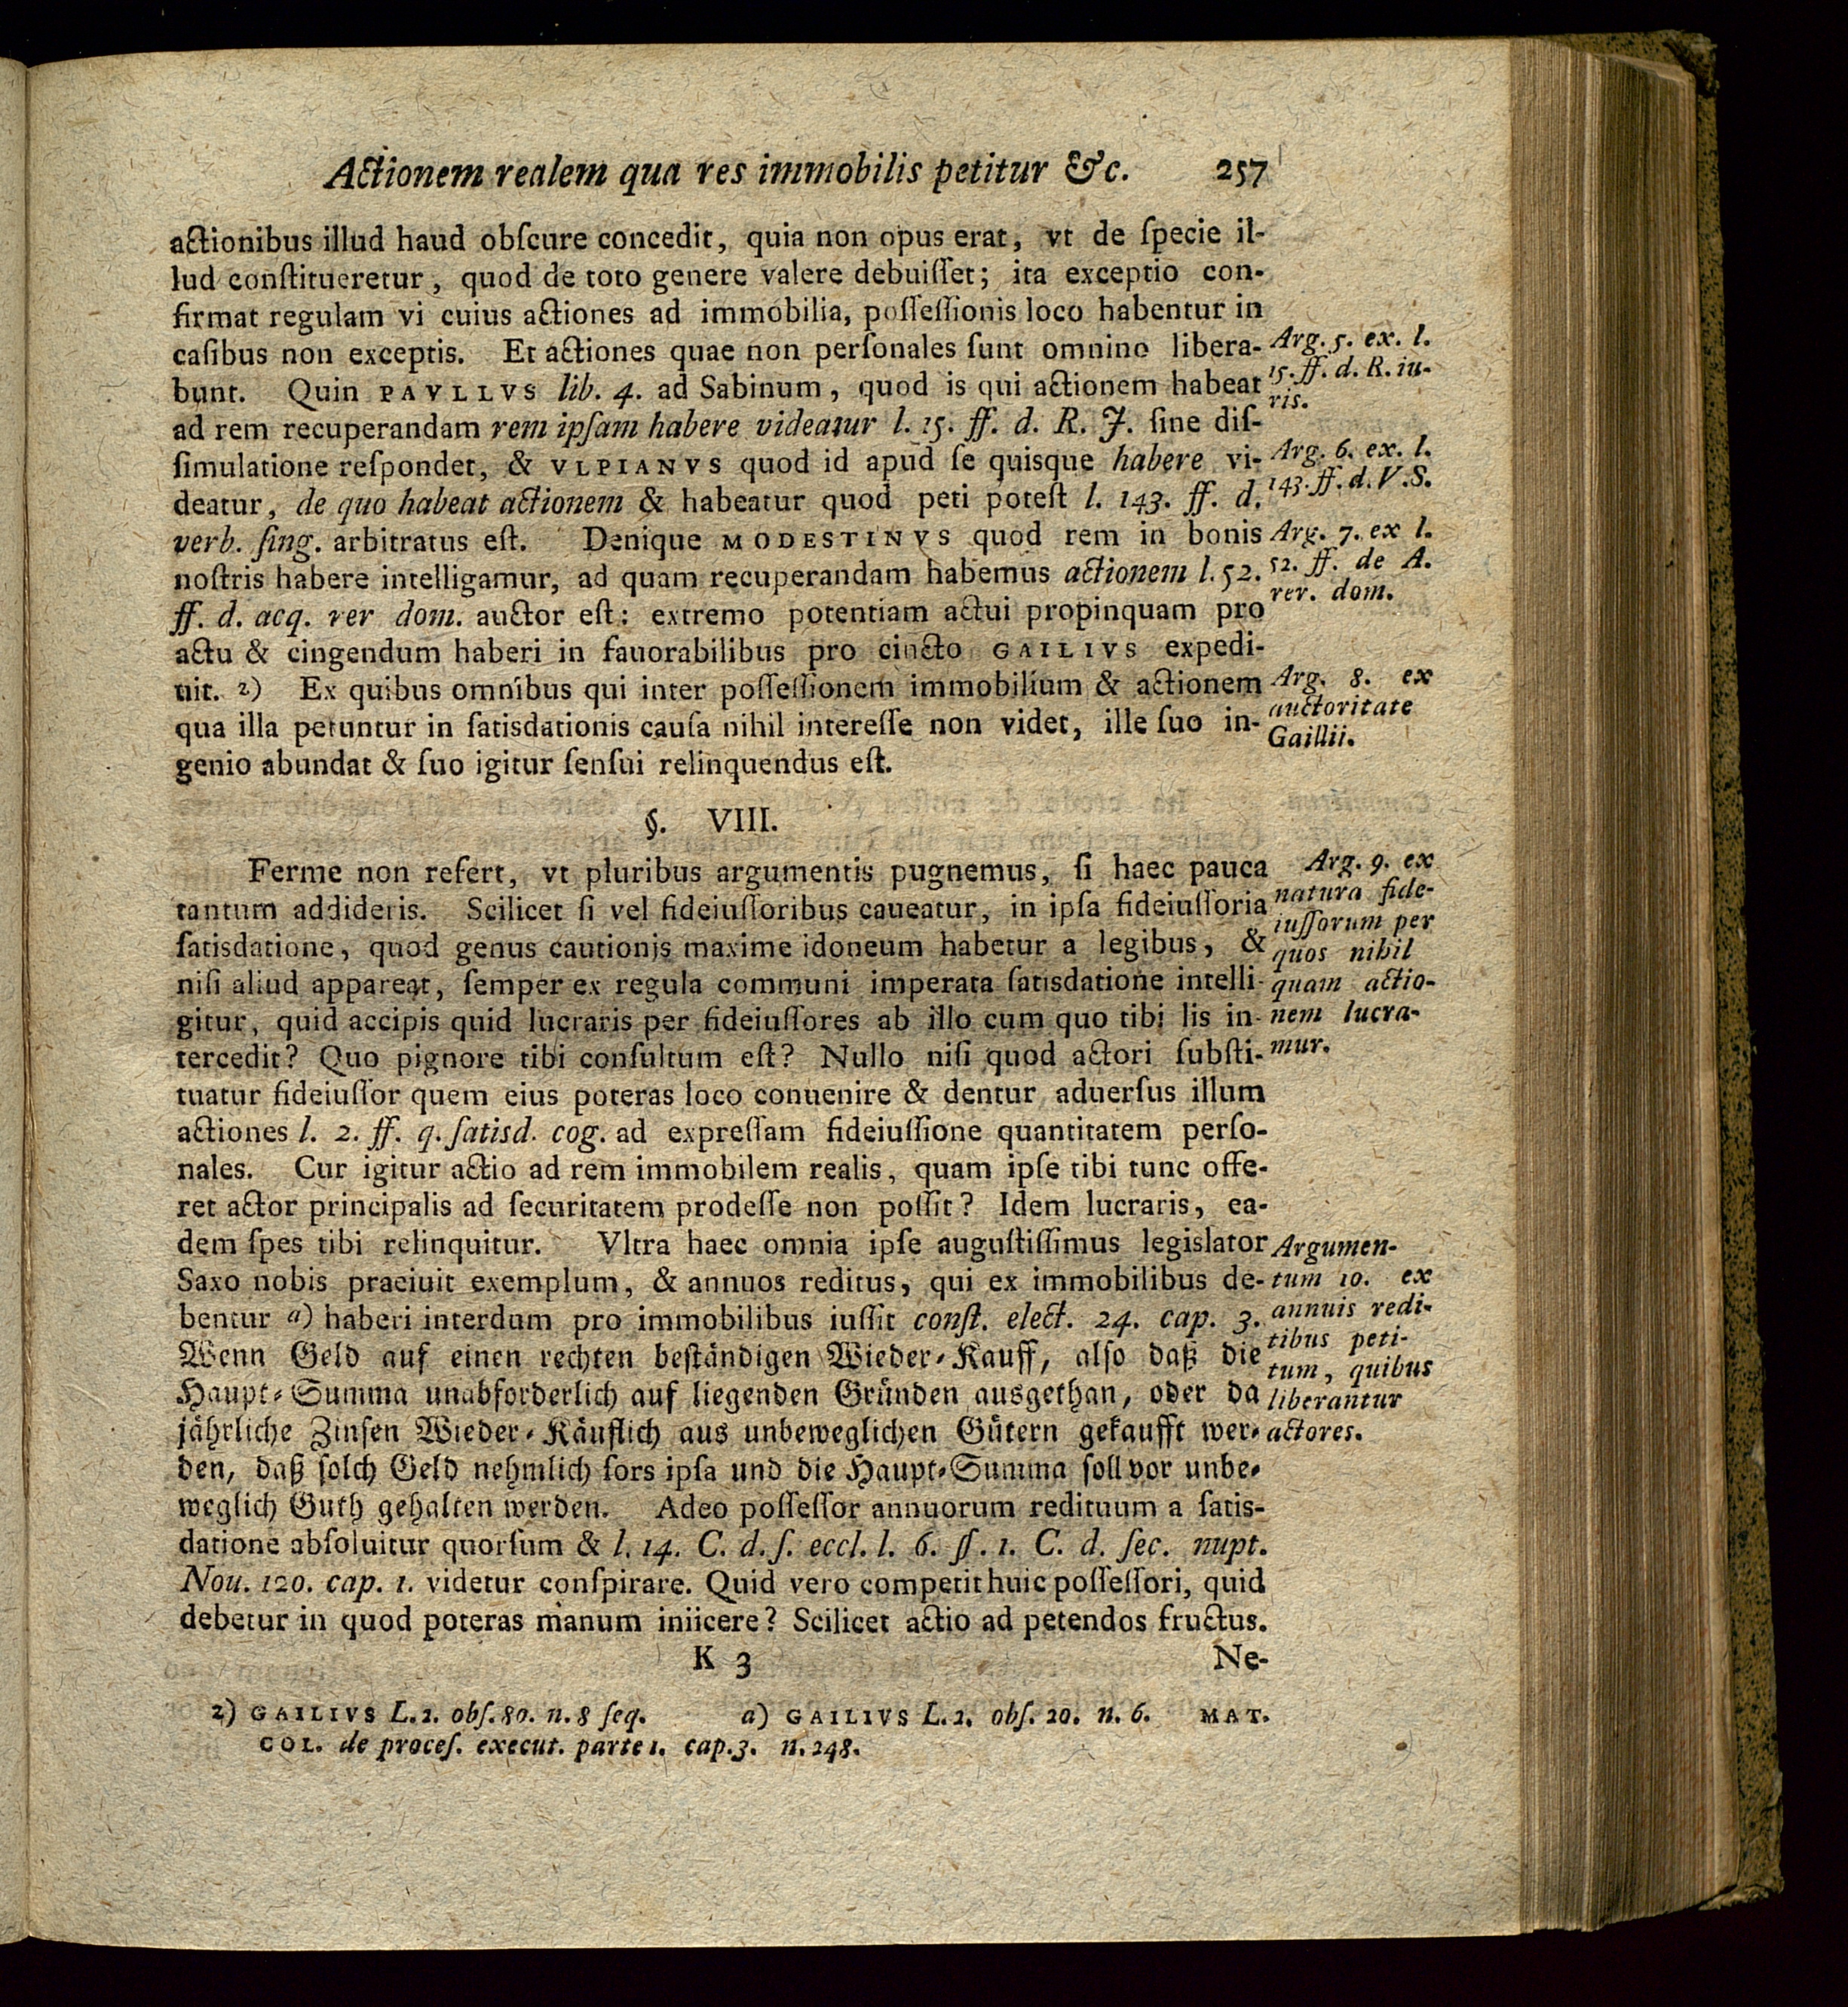 Actionem realem qua res immobilis petitur &c. 257
actionibus illud haud obſcure concedit, quia non opus erat, vt de ſpecie il-
lud conſtitueretur, quod de toto genere valere debuiſſet; ita exceptio con-
firmat regulam vi cuius actiones ad immobilia, poſſeſſionis loco habentur in
caſibus non exceptis. Et actiones quae non perſonales ſunt omnino libera-
bunt. Quin PAVLLVS lib. 4. ad Sabinum, quod is qui actionem habeat
ad rem recuperandam rem ipſam habere videatur l. 15. ff. d. R. J. ſine diſ-
ſimulatione reſpondet, & VLPIANVS quod id apud ſe quisque habere vi-
deatur, de quo habeat actionem & habeatur quod peti poteſt l. 143. ff. d.
verb. ſing. arbitratus eſt. Denique MODESTINVS quod rem in bonis
noſtris habere intelligamur, ad quam recuperandam habemus actionem l. 52.
ff. d. acq. rer dom. auctor eſt: extremo potentiam actui propinquam pro
actu & cingendum haberi in fauorabilibus pro cincto GAILIVS expedi-
uit. z) Ex quibus omnibus qui inter poſſeſſionem immobilium & actionem
qua illa petuntur in ſatisdationis cauſa nihil intereſſe non videt, ille ſuo in-
genio abundat & ſuo igitur ſenſui relinquendus eſt.
Arg. 5. ex. l.
15. ff. d. R. iu-
ris.
Arg. 6. ex. l.
143. ff. d. V. S.
Arg. 7. ex l.
52. ff. de A.
rer. dom.
Arg. 8. ex
auctoritate
Gaillii.
§. VIII.
Ferme non refert, vt pluribus argumentis pugnemus, ſi haec pauca
tantum addideris. Scilicet ſi vel fideiuſſoribus caueatur, in ipſa fideiuſſoria
ſatisdatione, quod genus cautionis maxime idoneum habetur a legibus, &
niſi aliud appareat, ſemper ex regula communi imperata ſatisdatione intelli-
gitur, quid accipis quid lucraris per fideiuſſores ab illo cum quo tibi lis in-
tercedit? Quo pignore tibi conſultum eſt? Nullo niſi quod actori ſubſti-
tuatur fideiuſſor quem eius poteras loco conuenire & dentur aduerſus illum
actiones l. 2. ff. q. ſatisd. cog. ad expreſſam fideiuſſione quantitatem perſo-
nales. Cur igitur actio ad rem immobilem realis, quam ipſe tibi tunc offe-
ret actor principalis ad ſecuritatem prodeſſe non poſſit? Idem lucraris, ea-
dem ſpes tibi relinquitur. Vltra haec omnia ipſe auguſtiſſimus legislator
Saxo nobis praeiuit exemplum, & annuos reditus, qui ex immobilibus de-
bentur a) haberi interdum pro immobilibus iuſſit conſt. elect. 24. cap. 3.
Wenn Geld auf einen rechten beſtändigen Wieder-Kauff, alſo daß die
Haupt-Summa unabforderlich auf liegenden Gründen ausgethan, oder da
jährliche Zinſen Wieder-Käuflich aus unbeweglichen Gütern gekaufft wer-
den, daß ſolch Geld nehmlich ſors ipſa und die Haupt-Summa ſoll vor unbe-
weglich Guth gehalten werden. Adeo poſſeſſor annuorum redituum a ſatis-
datione abſoluitur quorſum & l. 14. C. d. ſ. eccl. l. 6. §. 1. C. d. ſec. nupt.
Nou. 120. cap. 1. videtur conſpirare. Quid vero competit huic poſſeſſori, quid
debetur in quod poteras manum iniicere? Scilicet actio ad petendos fructus.
Arg. 9. ex
natura fide-
iuſſorum per
quos nihil
quam actio-
nem lucra-
mur.
Argumen-
tum 10. ex
annuis redi-
tibus peti-
tum, quibus
liberantur
actores.
K 3 Ne-
z) GAILIVS L. 2. obſ. 80. n. 8 ſeq. a) GAILIVS L. 2. obſ. 20. n. 6. MAT.
COL. de proceſ. execut. parte 1. cap. 3. n. 248.